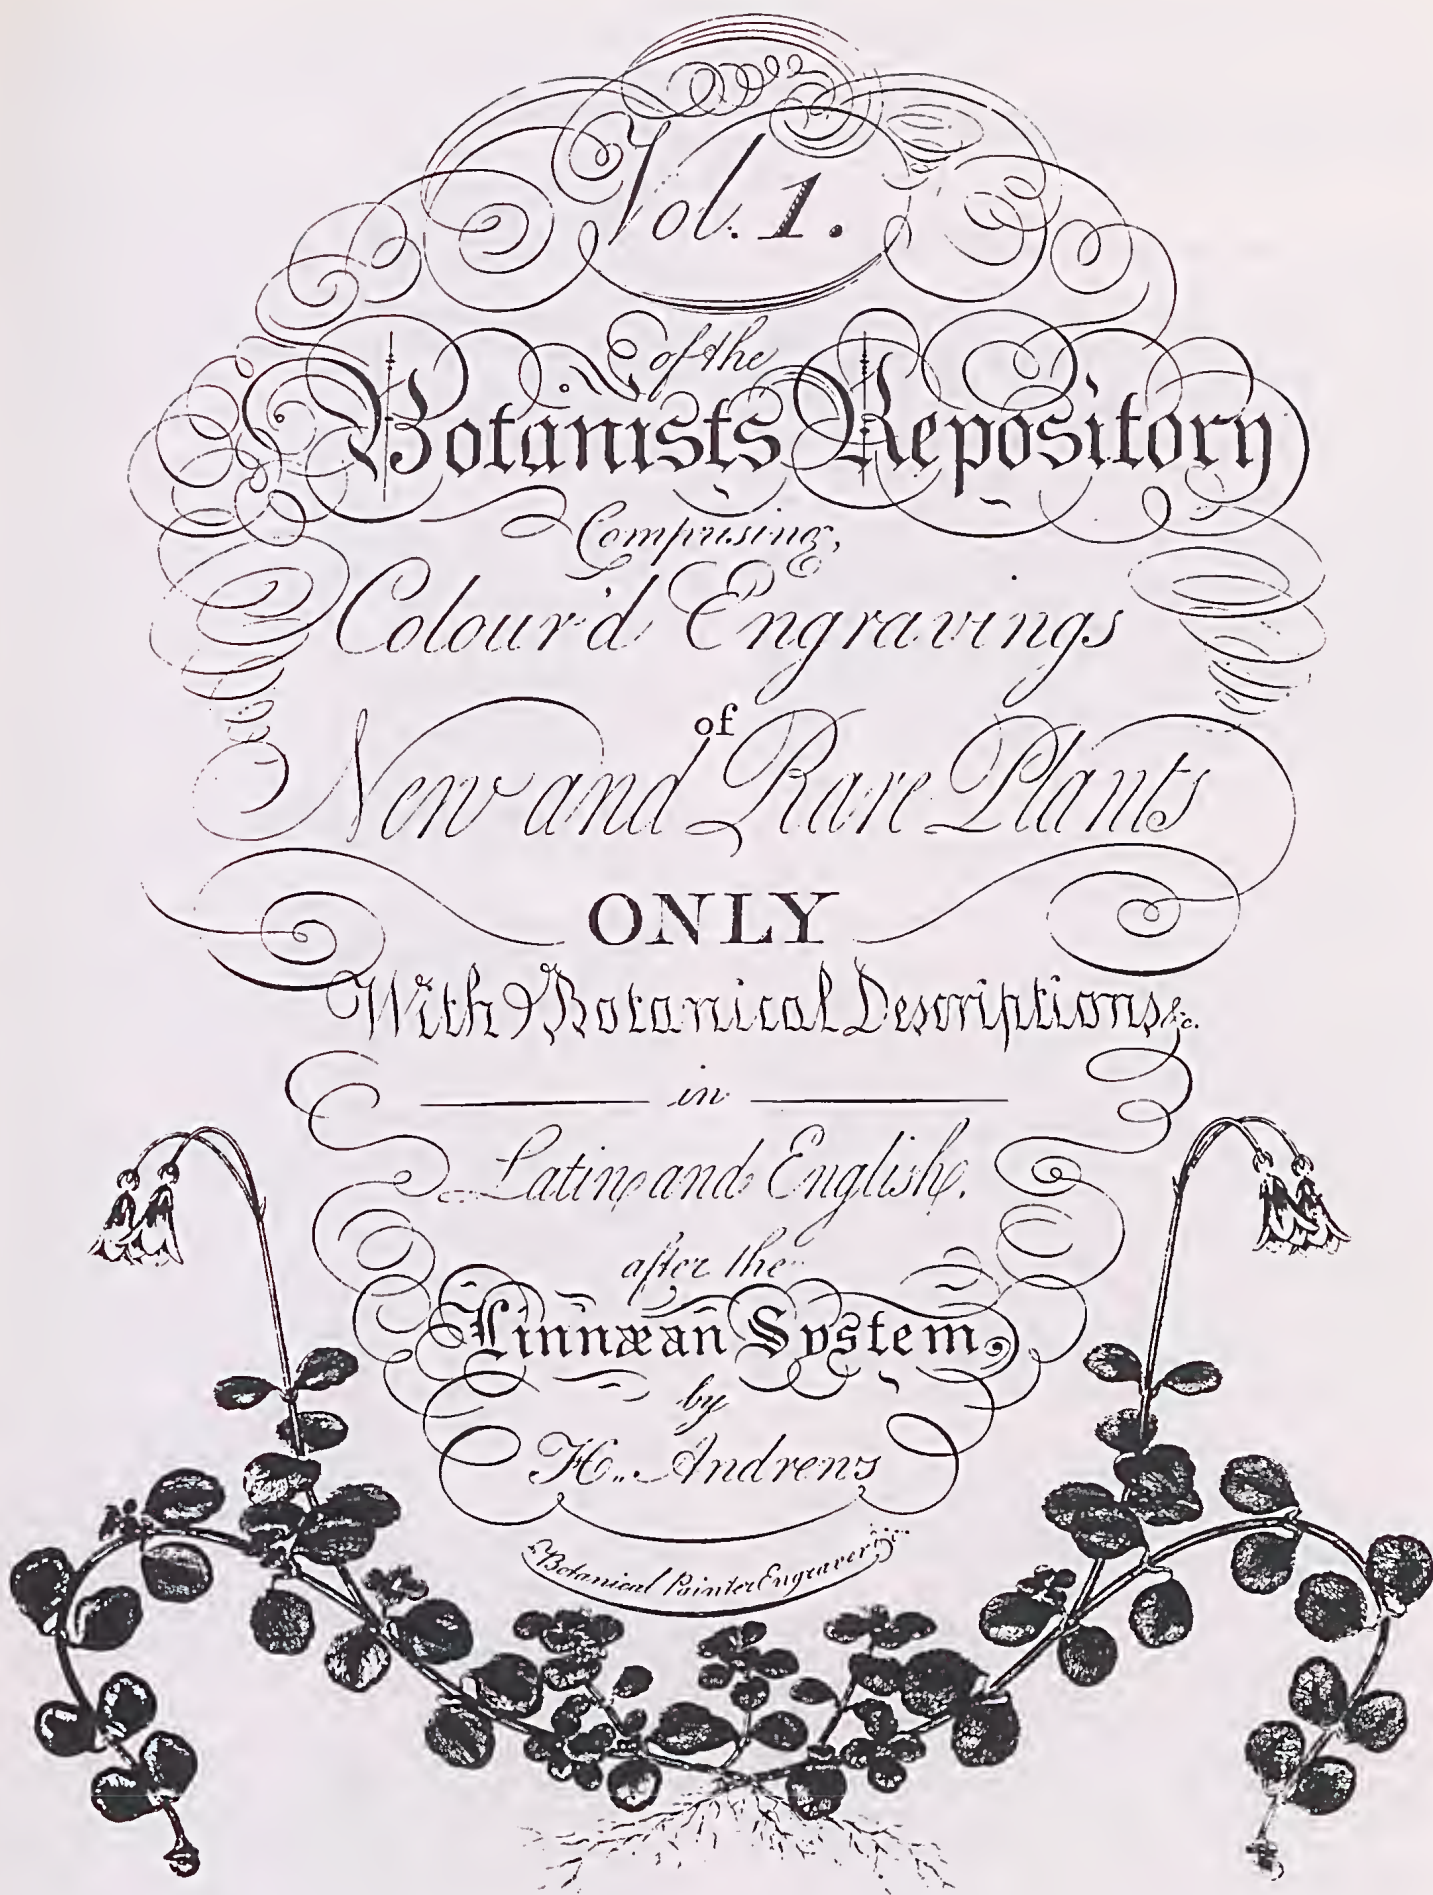 Vol. 1.
of the
Botanists Repository
Comprising,
Colour'd Engravings
of
New and Rare Plants
ONLY
With Botanical Descriptions &c.
in
Latin and English,
after the
Linnæan System,
by
H. Andrews
Botanical Painter Engraver, &c.